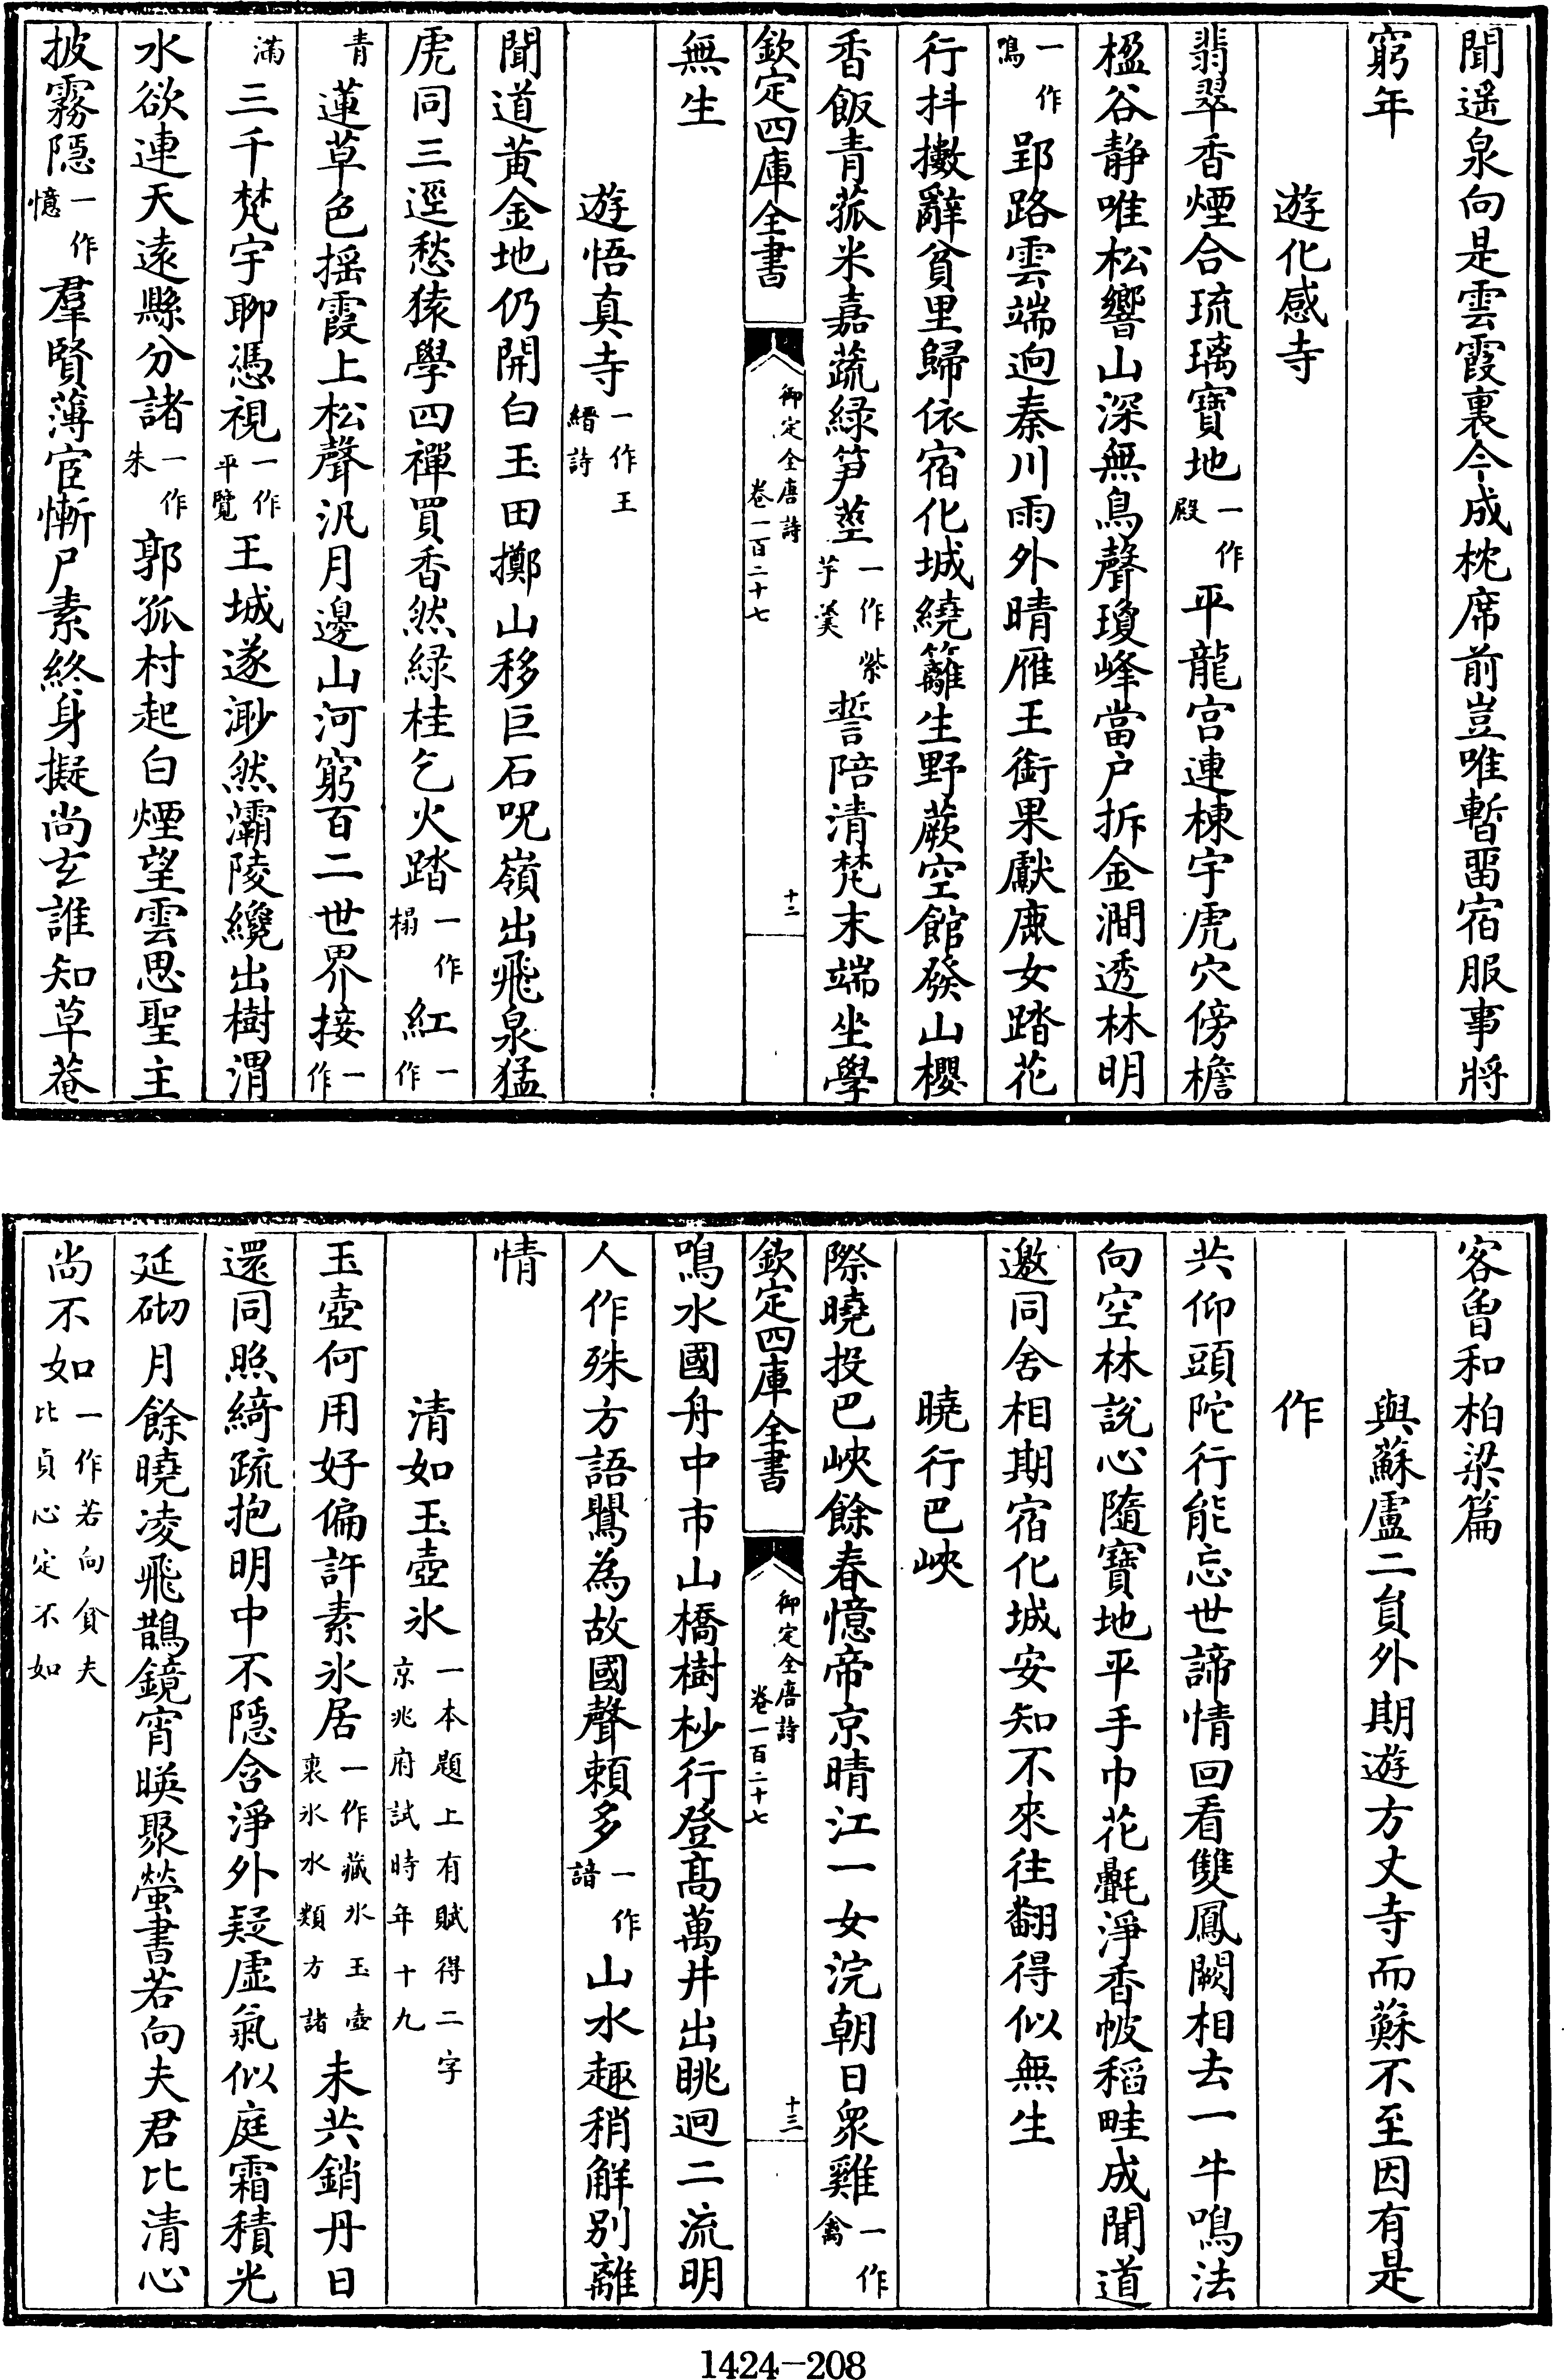 聞遥泉向是雲霞裏今成枕席前豈唯暫畱宿服事將
窮年
遊化感寺
翡翠香煙合琉璃寶地一作殿平龍宫連棟宇虎穴傍檐
楹谷静唯松響山深無鳥聲瓊峰當户拆金澗透林明
一作鳴郢路雲端逈秦川雨外晴雁王銜果獻鹿女踏花
行抖擻辭貧里歸依宿化城繞籬生野蕨空館發山櫻
香飯青菰米嘉蔬緑笋莖一作紫芋羹誓陪清梵末端坐學
欽定四庫全書
御定全唐詩
卷一百二十七
十二
無生
遊悟真寺一作王縉詩
聞道黄金地仍開白玉田擲山移巨石呪嶺出飛泉猛
虎同三逕愁猿學四禪買香然緑桂乞火踏一作榻紅一作
青蓮草色揺霞上松聲汎月邊山河窮百二世界接一作
滿三千梵宇聊憑視一作平覽王城遂渺然灞陵纔出樹渭
水欲連天遠縣分諸一作朱郭孤村起白煙望雲思聖主
披霧隠一作憶羣賢薄宦慚尸素終身擬尚玄誰知草菴
客曽和柏梁篇
與蘇盧二員外期遊方丈寺而蘇不至因有是
作
共仰頭陀行能忘世諦情回看雙鳳闕相去一牛鳴法
向空林説心隨寶地平手巾花㲲淨香帔稻畦成聞道
邀同舍相期宿化城安知不來往翻得似無生
曉行巴峽
際曉投巴峽餘春憶帝京晴江一女浣朝日衆雞一作禽
欽定四庫全書
御定全唐詩
卷一百二十七
十三
鳴水國舟中市山橋樹杪行登髙萬井出眺迥二流明
人作殊方語鸎為故國聲賴多一作諳山水趣稍解别離
情
清如玉壺氷一本題上有賦得二字京兆府試時年十九
玉壺何用好偏許素氷居一作藏氷玉壺裏氷水類方諸未共銷丹日
還同照綺疏抱明中不隠含淨外疑虚氣似庭霜積光
延砌月餘曉凌飛鵲鏡宵暎聚螢書若向夫君比清心
尚不如一作若向貪夫比貞心定不如
1424—208